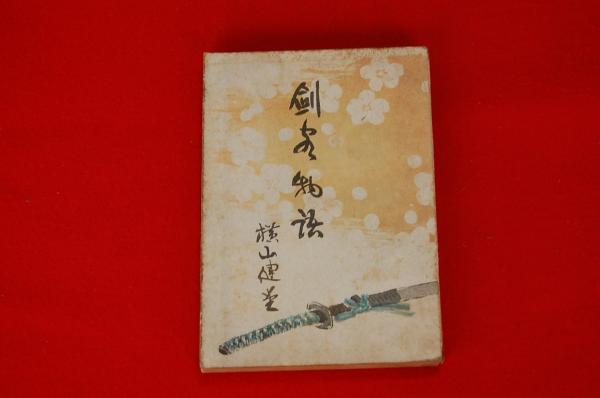 剣客物語
横山健堂